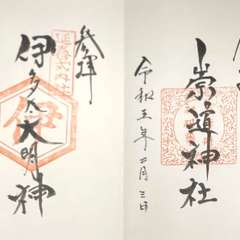 崇道神社
令和五年二月三日
参拝
延喜式内社
伊多太大明神
伊